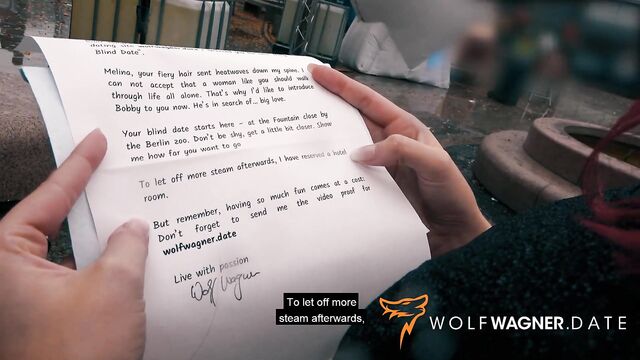 dating site wolfwagner
Blind Date".
Melina, your fiery hair sent heatwaves down my spine. I
can not accept that a woman like you should walk
through life all alone. That's why I'd like to introduce
Bobby to you now. He's in search of... big love.
Your blind date starts here - at the Fountain close by
the Berlin zoo. Don't be shy, get a little bit closer. Show
me how far you want to go
To let off more steam afterwards, I have reserved a hotel
room.
But remember, having so much fun comes at a cost:
Don't forget to send me the video proof for
wolfwagner.date
Live with passion
Wolf Wagner
To let off more
steam afterwards,
WOLFWAGNER.DATE